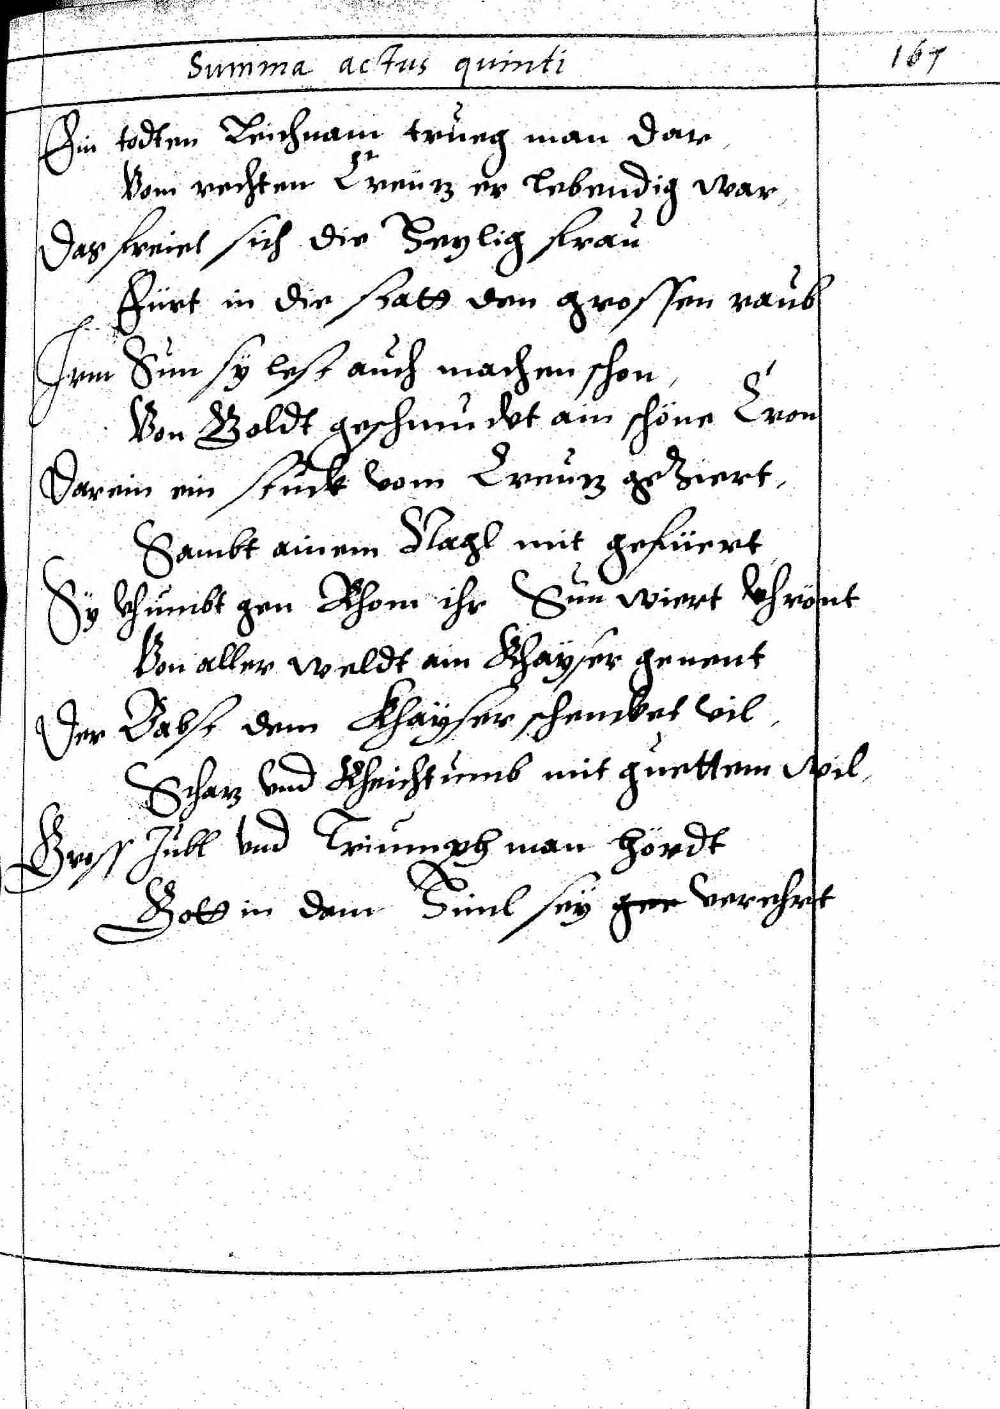 Summa actus quinti 167
Ein todten Leichnam trueg man dar,
Vom rechten Creutz er lebendig war,
Das freiet sich die Heylig frau
Fürt in die statt den grossen raub
Irm Sun sy lest auch machen schon,
Von Goldt geschmuckt ain schöne Cron
Darein ein stuck vom Creutz geziert,
Sambt ainem Nagl mit gefüert
Sÿ khumbt gen Rhom ihr Sun wiert khrönt
Von aller weldt ain Khayser genent
Der Babst dem Khaÿser schencket vil,
Schaz vnd Rheichtumb mit guettem wil,
Gross Jubl vnd Triumph man hördt
Gott in dem Himl seÿ gee verehrt